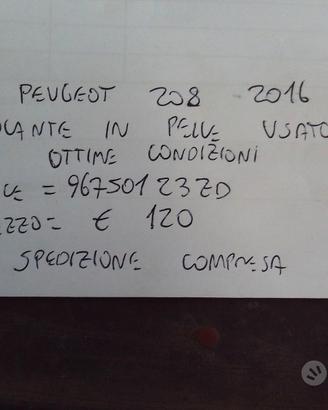 PEUGEOT 208 2016
OLANTE IN PELLE USATO
OTTIME CONDIZIONI
CE = 967501232D
EZZO= € 120
SPEDIZIONE COMPRESA